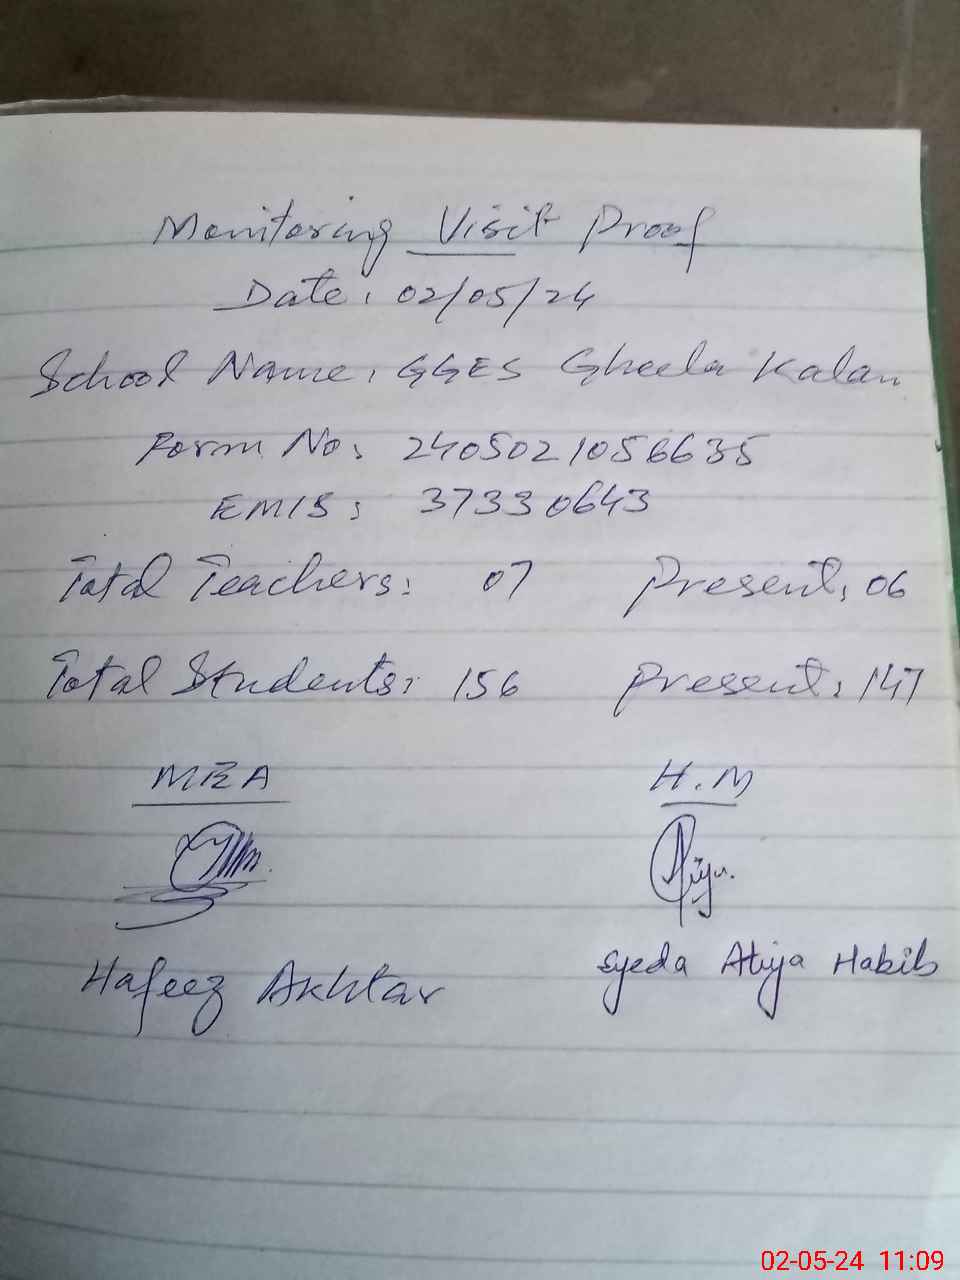 Monitoring Visit Proof
Date: 02/05/24
School Name: GGES Gheela Kalan
Form No: 2405021056635
EMIS: 37330643
Total Teachers: 07 Present: 06
Total Students: 156 Present: 147
MEA H.M
Hafeez Akhtar Syeda Atiya Habib
02-05-24 11:09